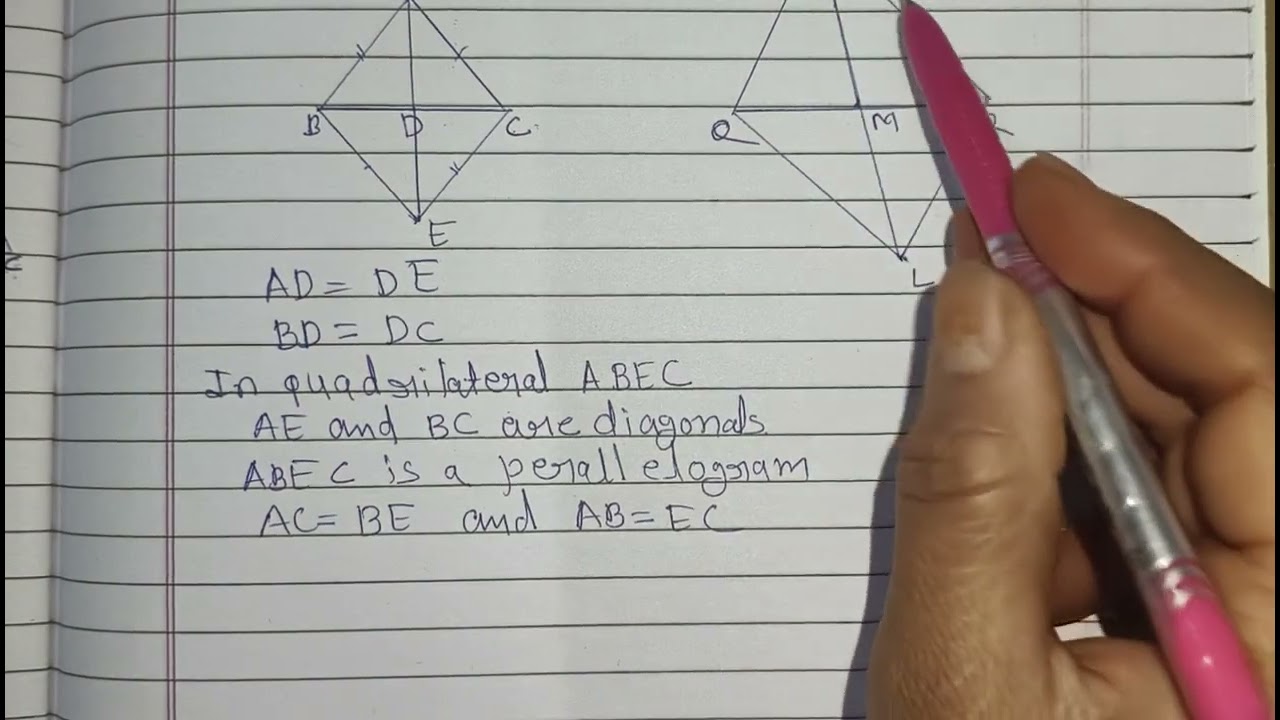 B D C
Q M R
E
L
AD = DE
BD = DC
In quadrilateral ABEC
AE and BC are diagonals
ABEC is a perallelogram
AC = BE and AB = EC